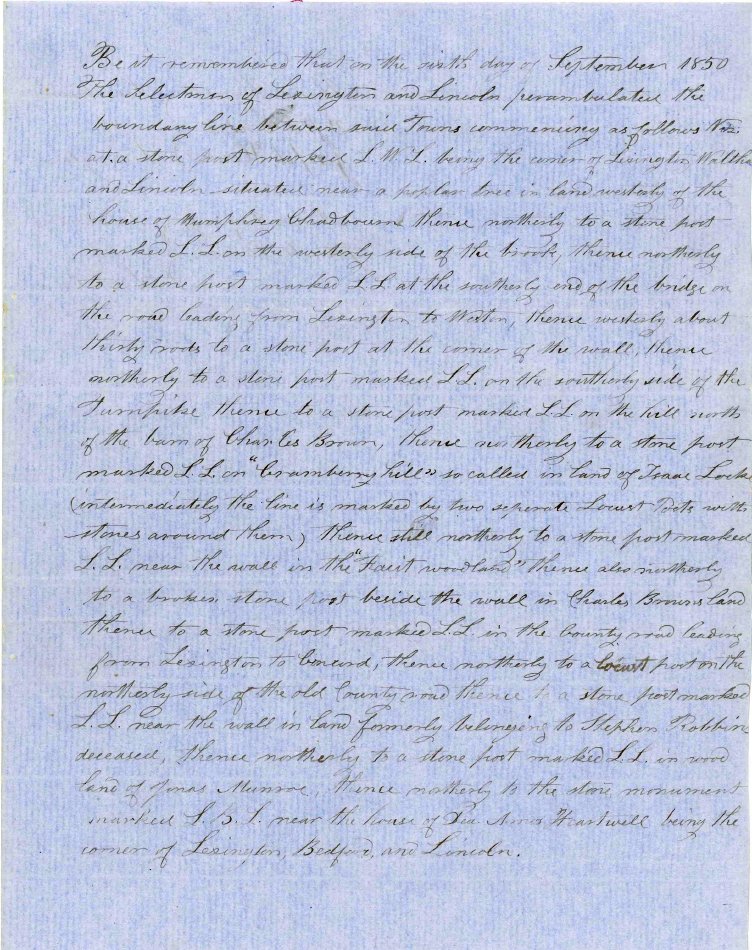 Be it remembered that on the sixth day of September 1850
The Selectmen of Lexington and Lincoln perambulated the
boundary line between said Towns commencing as follows Viz.
at a stone post marked L. W. L. being the corner of Lexington Waltha
and Lincoln situated near a poplar tree in land westerly of the
house of Humphrey Chadbourne thence northerly to a stone post
marked L. L. on the westerly side of the brook, thence northerly
to a stone post marked L L at the southerly end of the bridge on
the road leading from Lexington to Weston, thence westerly about
thirty rods to a stone post at the corner of the wall, thence
northerly to a stone post marked L L. on the southerly side of the
Turnpike thence to a stone post marked L L on the hill north
of the barn of Charles Brown, thence northerly to a stone post
marked L L on "Cramberry hill" so called in land of Isaac Locke
(intermediately the line is marked by two seperate Locust Posts with
stones around them) thence still northerly to a stone post marked
L. L. near the wall in the woodland" thence also northerly
to a broken stone post beside the wall in Charles Browns land
thence to a stone post marked L. L in the County road leading
from Lexington to Concord, thence northerly to a locust post on the
northerly side of the old County road thence to a stone post marked
L. L. near the wall in land formerly belonging to Stephen Robbins
deceased, thence northerly to a stone post marked L. L. in wood
land of Jonas Munroe, thence northerly to the stone monument
marked L. B. L. near the house of Dea Amos Hartwell being the
corner of Lexington, Bedford, and Lincoln.